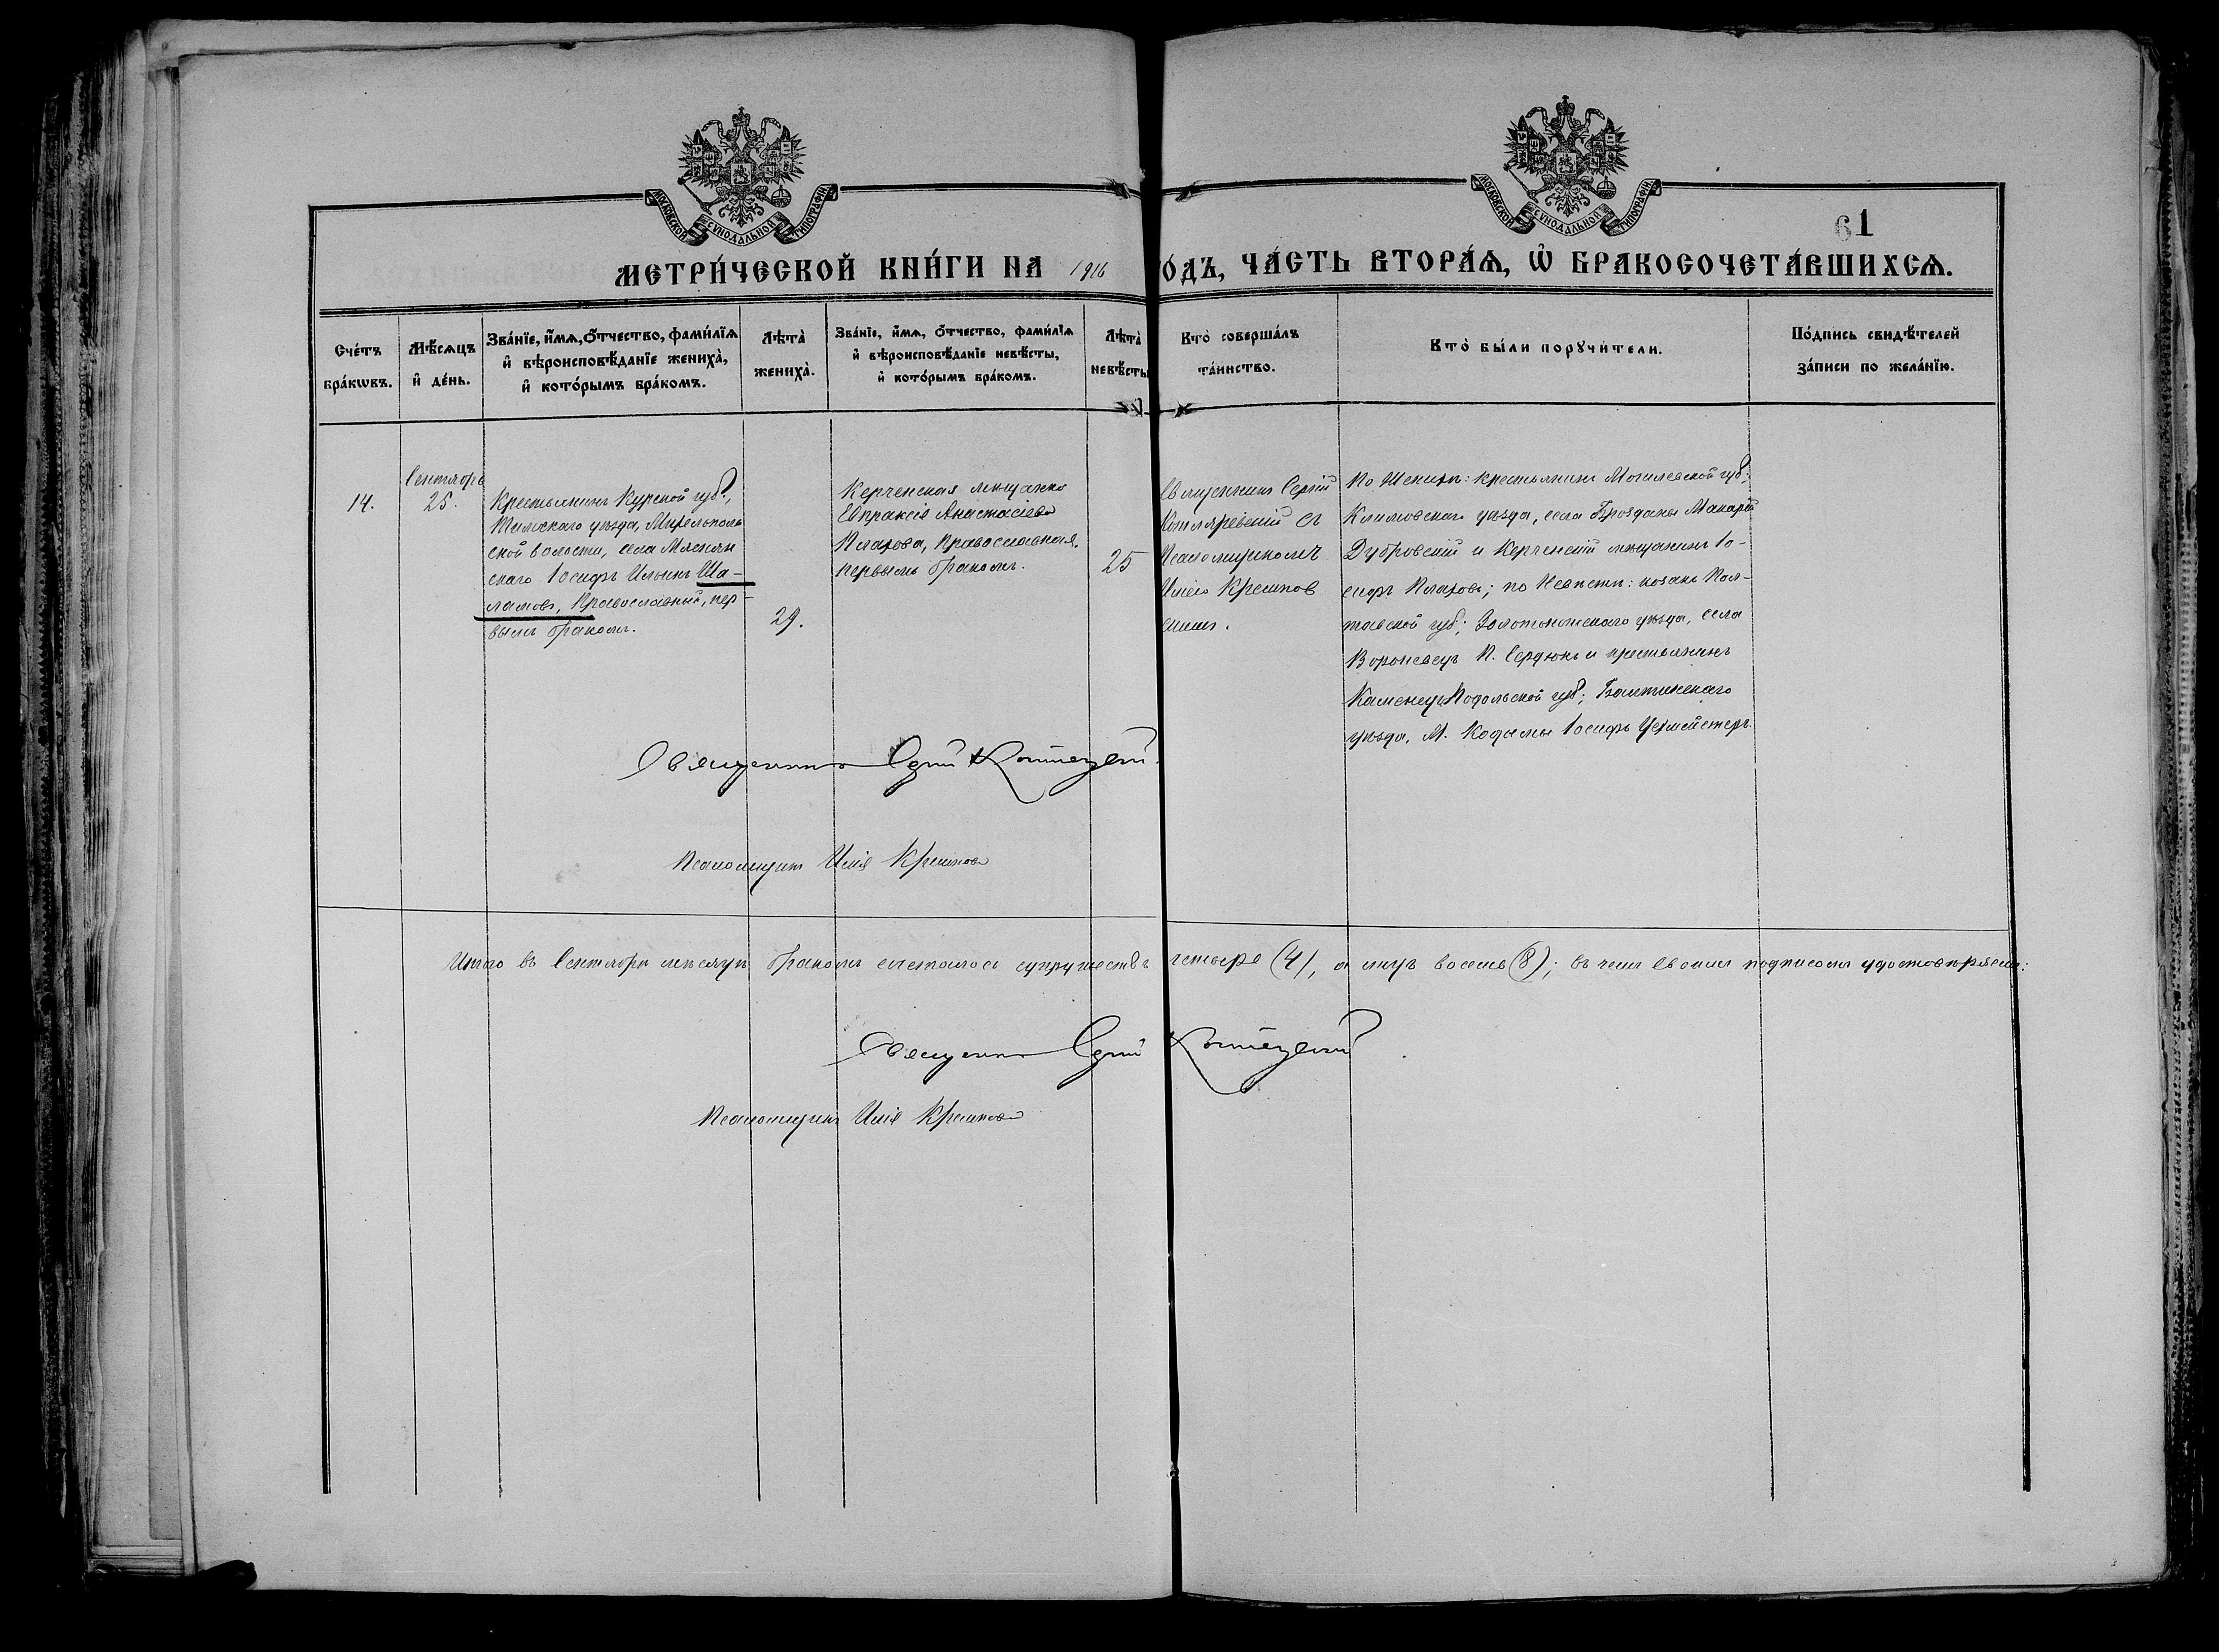 МОСКОВСКОЙ СѴНОДАЛЬНОЙ ТИПОГРАФІИ
МОСКОВСКОЙ СѴНОДАЛЬНОЙ ТИПОГРАФІИ
61
МЕТРИ́ЧЕСКОЙ КНИ́ГИ НА 1916 ГО́ДЪ, ЧА́СТЬ ВТОРА́Ѧ, Ѡ БРАКОСОЧЕТА́ВШИХСѦ.
Сче́тъ бра́кѡвъ.
Мѣ́сѧцъ и де́нь.
Зва́нїе, и́мѧ, ѻ́тчество, фами́лїѧ и вѣроисповѣ́данїе жениха̀, и кото́рымъ бра́комъ.
Лѣ́та̀ жениха̀.
Зва́нїе, и́мѧ, ѻ́тчество, фами́лїѧ и вѣроисповѣ́данїе невѣ́сты, и кото́рымъ бра́комъ.
Лѣ́та̀ невѣ́сты
Кто̀ соверша́лъ та́инство.
Кто̀ бы́ли порꙋчи́тели.
По́дпись свидѣ́телей за́писи по жела́нїю.
14.
Сентябрь
25.
Крестьянинъ Курской губ.,
Тимскаго уѣзда,
ской волости, села
скаго Іосифъ Ильинъ Ша-
ламовъ, Православный, пер-
вымъ бракомъ.
29.
Керченская мещанка
Евпраксія Анастасіева
Плахова, Православная,
первымъ бракомъ.
25
Священникъ Сергій
съ
Псаломщикомъ
Иліею
По Женихѣ: крестьянинъ Могилевской губ.;
Климовскаго уѣзда, села Макарій
Дубровскій и Керченскій мещанинъ Іо-
сифъ Плаховъ; по Невѣстѣ: козакъ Пол-
тавской губ.; Золотоношскаго уѣзда, села
П. Сердюкъ и крестьянинъ
Каменец-Подольской губ.; Балтинскаго
уѣзда, М. Кодымы Іосифъ Цехмейстеръ.
Священникъ Сергій
Псаломщикъ Илія
Итого въ Сентябрѣ мѣсяцѣ бракомъ сочеталось супружествъ четыре (4), а лицъ восемь (8); въ чемъ своимъ подписомъ удостовѣряемъ:
Священникъ Сергій
Псаломщикъ Илія